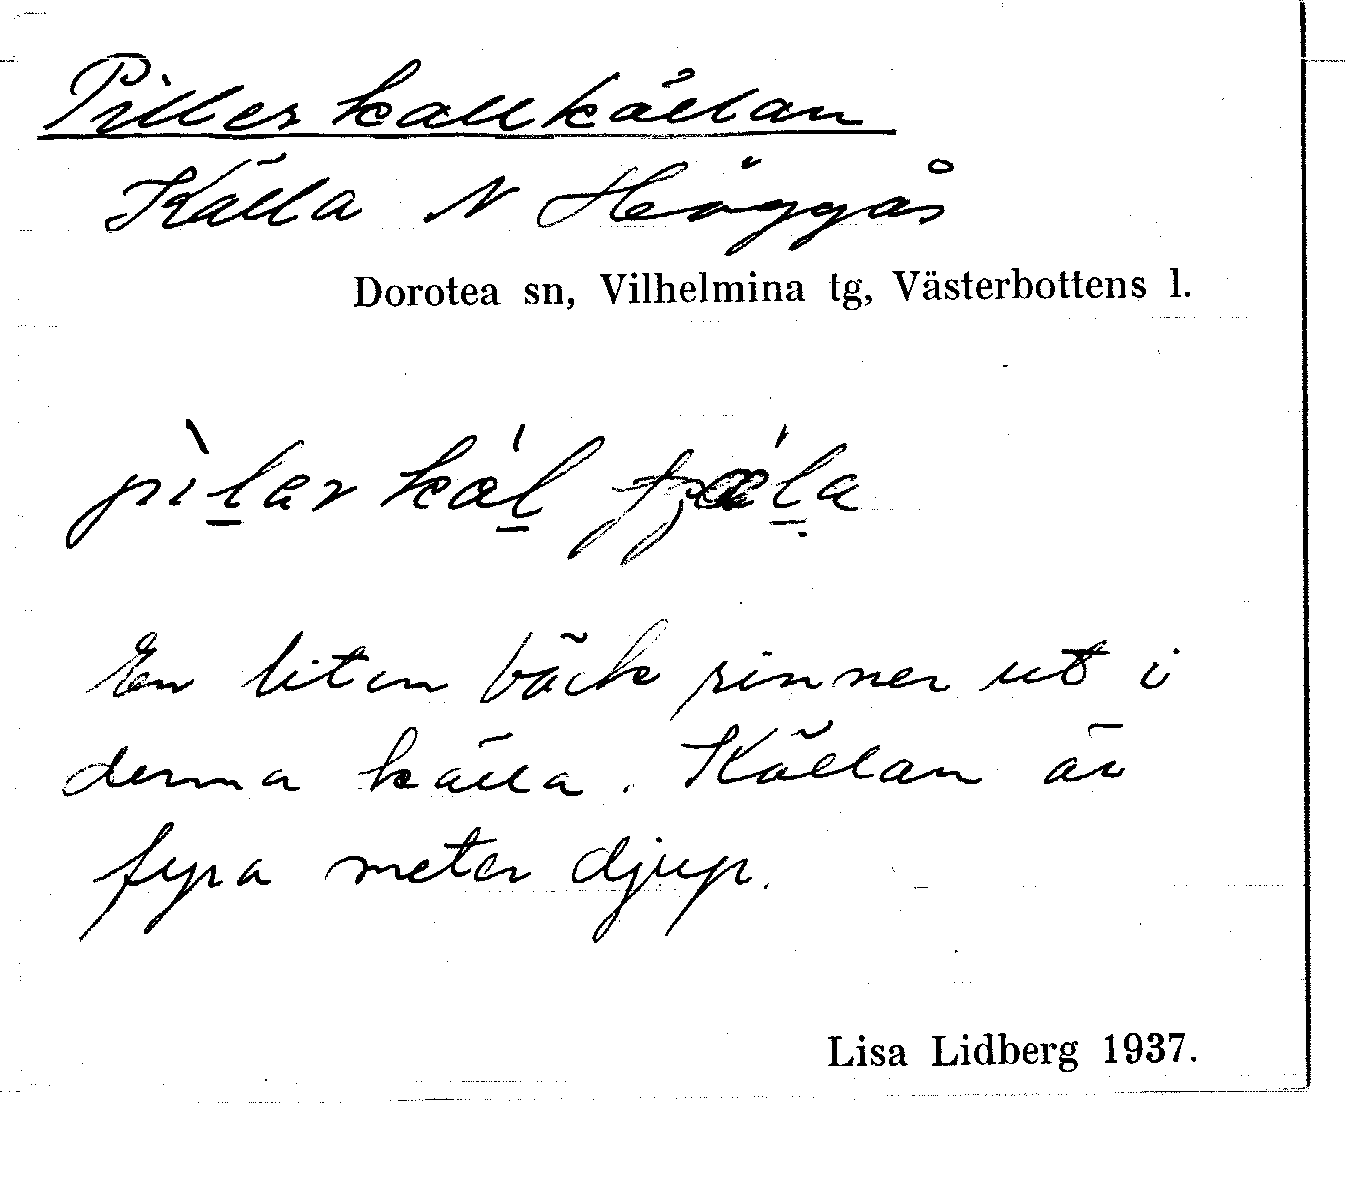 Pillerkallkällan
Källa N Höggås
Dorotea sn, Vilhelmina tg, Västerbottens l.
En liten bäck rinner ut i
denna källa. Källan är
fyra meter djup.
Lisa Lidberg 1937.